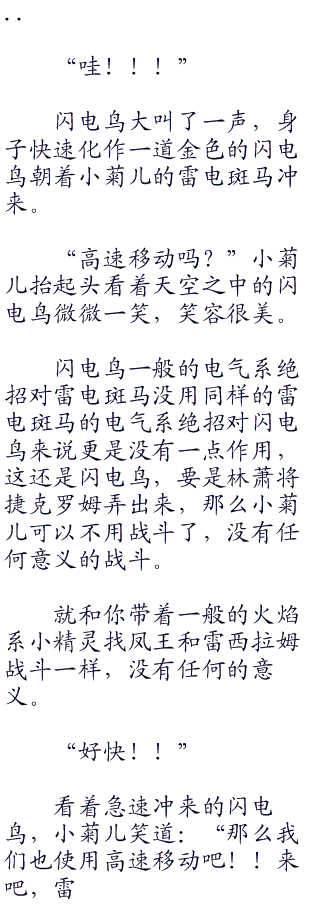 ..
“哇！！！”
闪电鸟大叫了一声，身
子快速化作一道金色的闪电
鸟朝着小菊儿的雷电斑马冲
来。
“高速移动吗？”小菊
儿抬起头看着天空之中的闪
电鸟微微一笑，笑容很美。
闪电鸟一般的电气系绝
招对雷电斑马没用同样的雷
电斑马的电气系绝招对闪电
鸟来说更是没有一点作用，
这还是闪电鸟，要是林萧将
捷克罗姆弄出来，那么小菊
儿可以不用战斗了，没有任
何意义的战斗。
就和你带着一般的火焰
系小精灵找凤王和雷西拉姆
战斗一样，没有任何的意
义。
“好快！！”
看着急速冲来的闪电
鸟，小菊儿笑道：“那么我
们也使用高速移动吧！！来
吧，雷